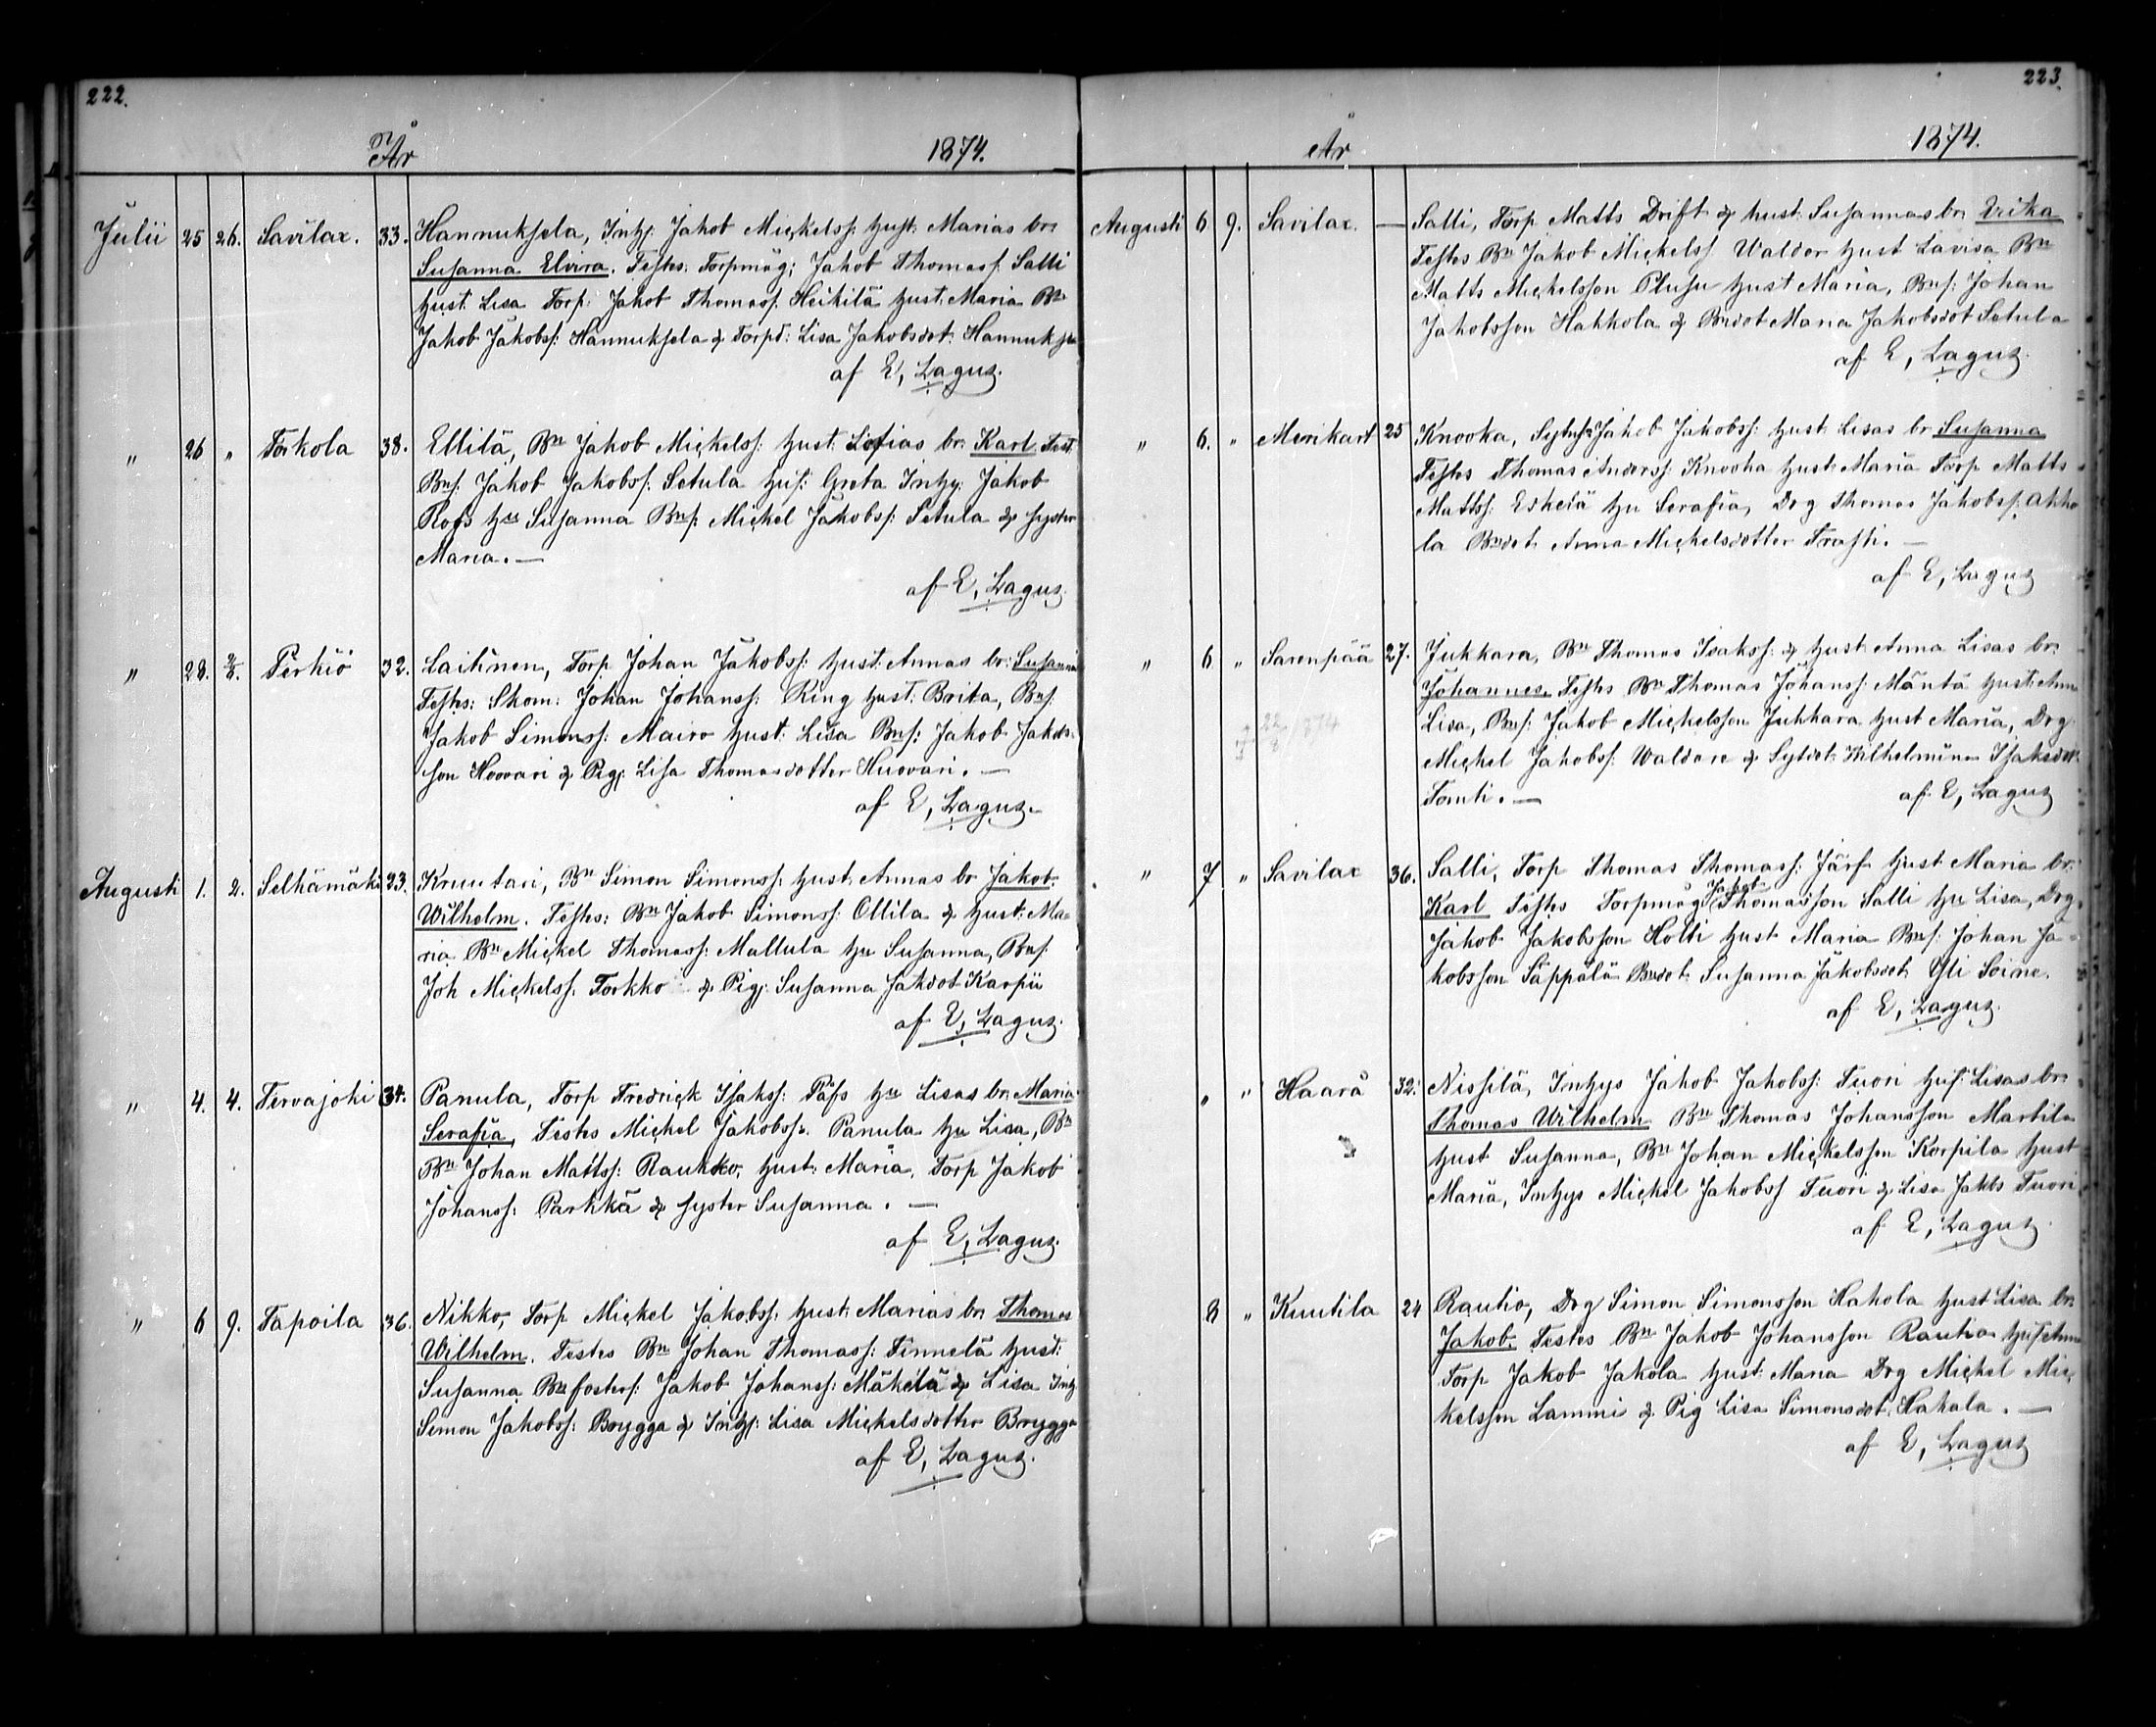 222.
År 1874.
Julii 25 26. Savilax. 33. Hannuksela, Inhy: Jakob Mickelss: hust: Marias br:
Susanna Elvira. Testes: Torpmåg: Jakob Thomass: Salli
hust: Lisa Torp: Jakob Thomass: Heikilä hust: Maria Bn
Jakob Jakobs: Hannuksela & Torpd: Lisa Jakobsdot: Hannuksela
af E, Lagus.
" 26 " Torkola 38. Ellilä, Bn Jakob Mickelss: hust: Sofias br: Karl Test:
Bns: Jakob Jakobss: Setula hus: Greta Inhy: Jakob
Rofs hu Susanna Bns: Mickel Jakobss: Setula & syster
Maria. —
af E, Lagus.
" 28. 2/8. Perkiö 32. Laihinen, Torp Johan Jakobss: hust: Annas br: Susanna
Testes: Skom: Johan Johanss: Ring hust: Brita, Bns:
Jakob Simonss: Mairo hust: Lisa Bns: Jakob Jakob-
son Hoovari & Pig: Lisa Thomasdotter Huovari. —
af E, Lagus.
Augusti 1. 2. Selkämäki 23. Kruutari, Bn Simon Simonss: hust: Annas br Jakob
Wilhelm. Testes: Bn Jakob Simonss: Ollila & hust: Ma-
ria Bn Mickel Thomass: Mullula hu Susanna, Bns:
Joh Mickelss: Torkko & Pig: Susanna Jakdot Karpii
af E, Lagus.
" 4. 4. Tervajoki 34. Panula, Torp Fredrick Isakss: Päss hu Lisas br: Maria
Serafia, Testes Mickel Jakobss: Panula hu Lisa, Bn
Bn Johan Mattss: Raukko, hust: Maria, Torp Jakob
Johanss: Parkkä & syster Susanna. —
af E, Lagus.
" 6 9. Tapoila 36. Nikko, Torp Mickel Jakobss: hust: Marias br: Thomas
Wilhelm. Testes Bn Johan Thomass: Finnelä hust:
Susanna Bn fosters: Jakob Johanss: Mäkelä & Lisa Inhy
Simon Jakobss: Brygga & Inhy: Lisa Mickelsdotter Brygga
af E, Lagus.
223.
År 1874.
Augusti 6 9. Savilax. — Salli, Torp Matts Drift & hust: Susannas br: Erika
Testes Bn Jakob Mickelss Waldor hust Lavisa, Bn
Matts Mickelsson Plusu hust Maria, Bns: Johan
Jakobsson Hakkola & Bndot Maria Jakobsdot Setula
af E, Lagus.
" 6. " Merikart 25 Knooka, Jakob Jakobss: hust: Lisas br Susanna
Testes Thomas Anderss: Knooha hust: Maria Torp Matts
Mattss: Eskelä hu Serafia, Drg Thomas Jakobss: Ahko
la Bndot Anna Mickelsdotter Trasti. —
af E, Lagus
" 6 " Sarenpää 27. Jukkara, Bn Thomas Isakss: & hust: Anna Lisas br:
Johannes. Testes Bn Thomas Johanss: Mäntä hust: Anna
Lisa, Bns: Jakob Mickelsson Jukkara hust Maria, Drg
Mickel Jakobss: Waldore & Sytdot: Wilhelmina Isaksdot:
Tomti. —
af E, Lagus
† 22/8 1874
" 7 " Savilax 36. Salli, Torp Thomas Thomass: Järf hust Maria br:
Karl Testes Torpmåg Jakob Thomasson Salli hu Lisa, Drg
Jakob Jakobsson Holli hust Maria Bns: Johan Ja-
kobsson Säppälä Bndot: Susanna Jakobsdot Yli Soine.
af E, Lagus.
" " Haarä 32. Nissilä, Inhys Jakob Jakobss: Tuori hus: Lisas br:
Thomas Wilhelm Bn Thomas Johansson Martila
hust Susanna, Bn Johan Mickelsson Korpila hust
Maria, Inhys Mickel Jakobss Tuori & Lisa Jakbs Tuori
af E, Lagus.
8 " Kuutila 24 Rautio, Drg Simon Simonsson Hakola hust Lisa br:
Jakob. Testes Bn Jakob Johansson Rautio hus: Anna
Torp Jakob Jakola hust: Maria Drg Mickel Mic
kelsson Lammi & Pig Lisa Simonsdot: Hakala. —
af E, Lagus